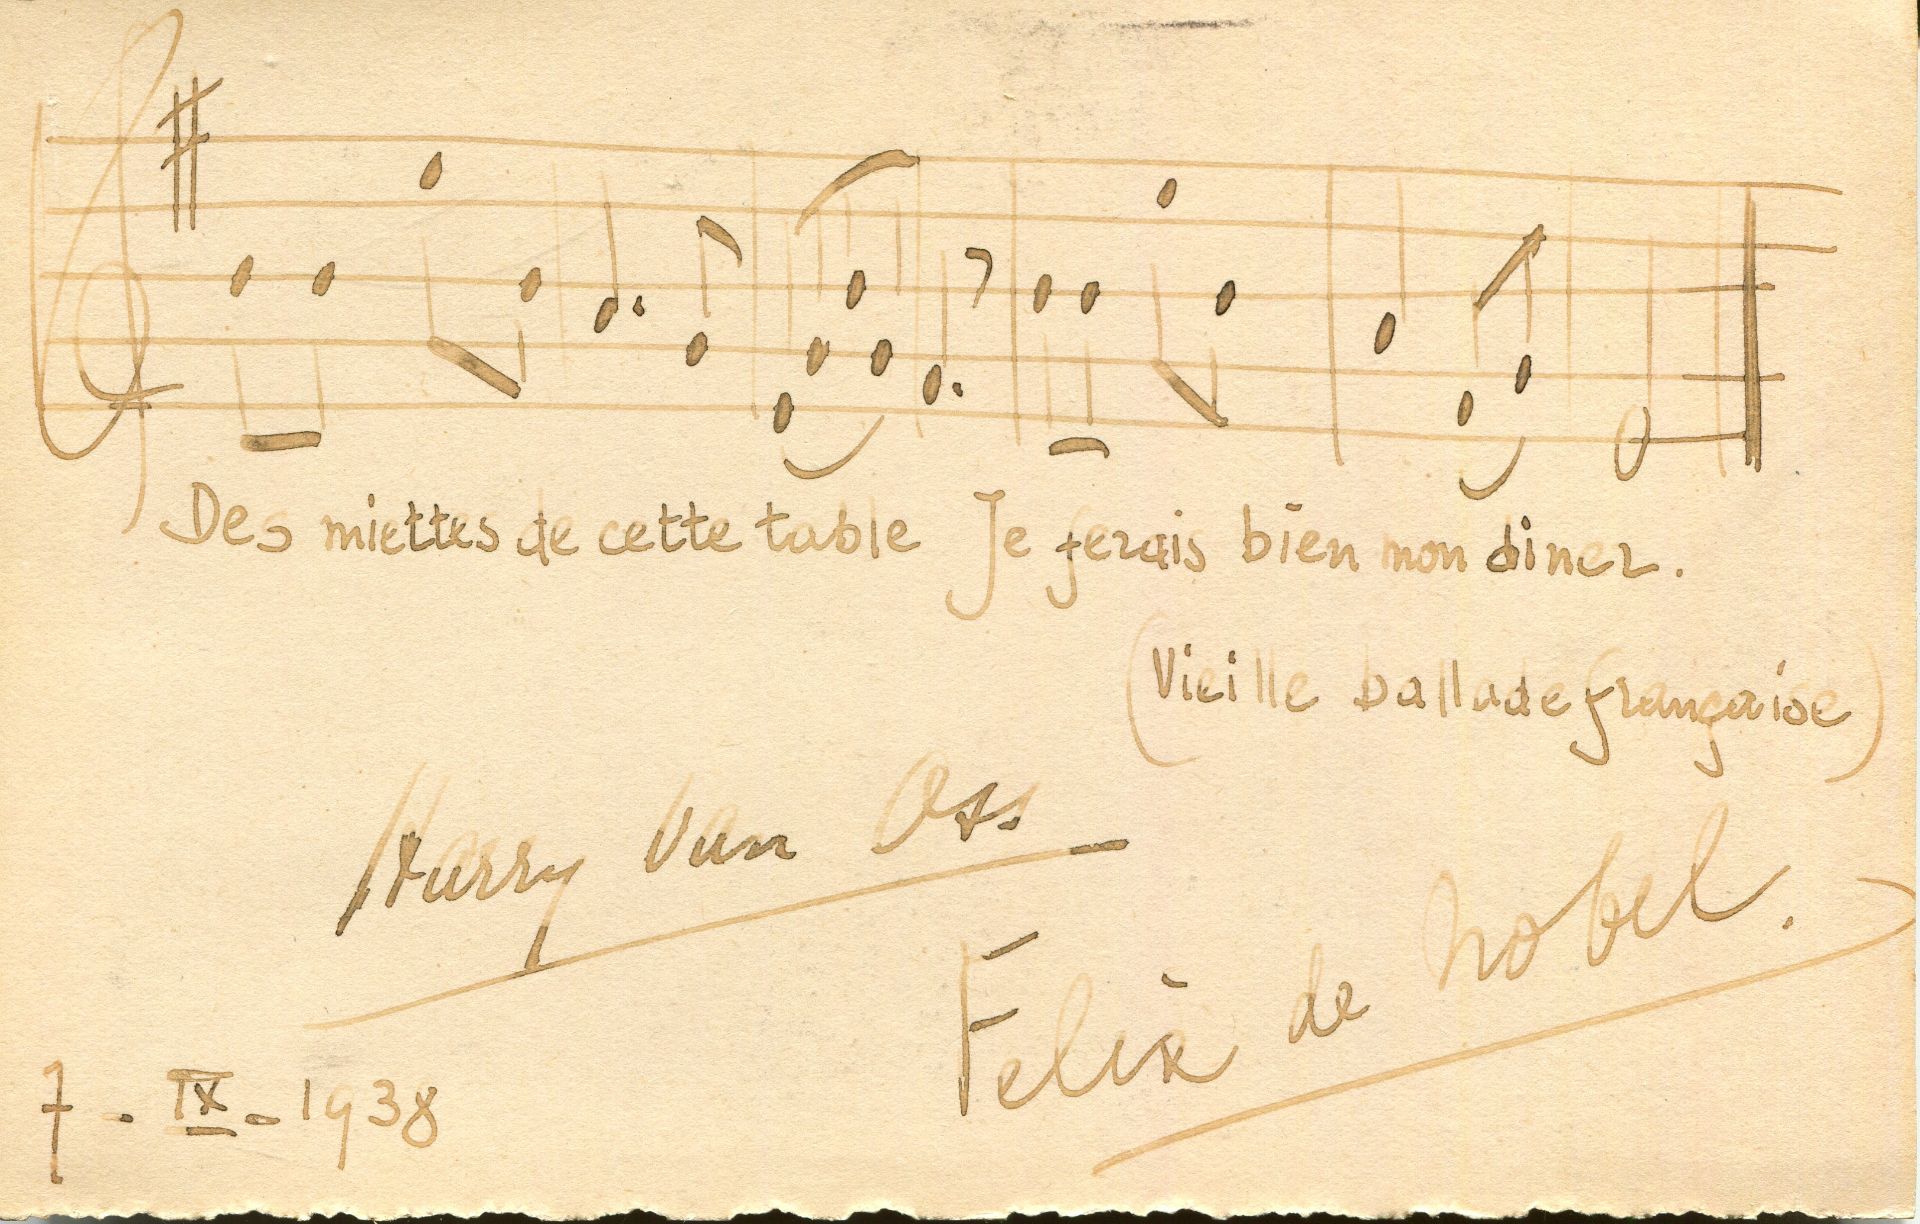 Des miettes de cette table Je ferais bien mon diner.
(Vieille ballade française)
Harry Van Oss
Felix de Nobel.
7 - IX - 1938